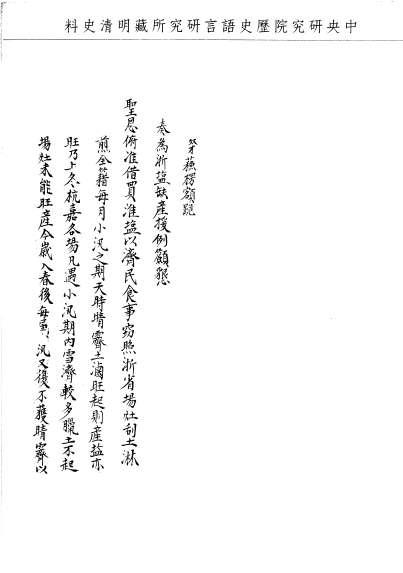 中央研究院歷史語言研究所藏明清史料
奴才蘇楞額跪
奏為浙盐缺產援例籲懇
聖恩俯准借買淮盐以濟民食事窃照浙省場灶刮土淋
煎全藉每月小汛之期天時晴霽土滷旺起則產盐亦
旺乃上冬杭嘉各場凡遇小汛期内雪濟較多臘土不起
場灶未能旺產今歲入春後每逢汛又復不獲晴霽以